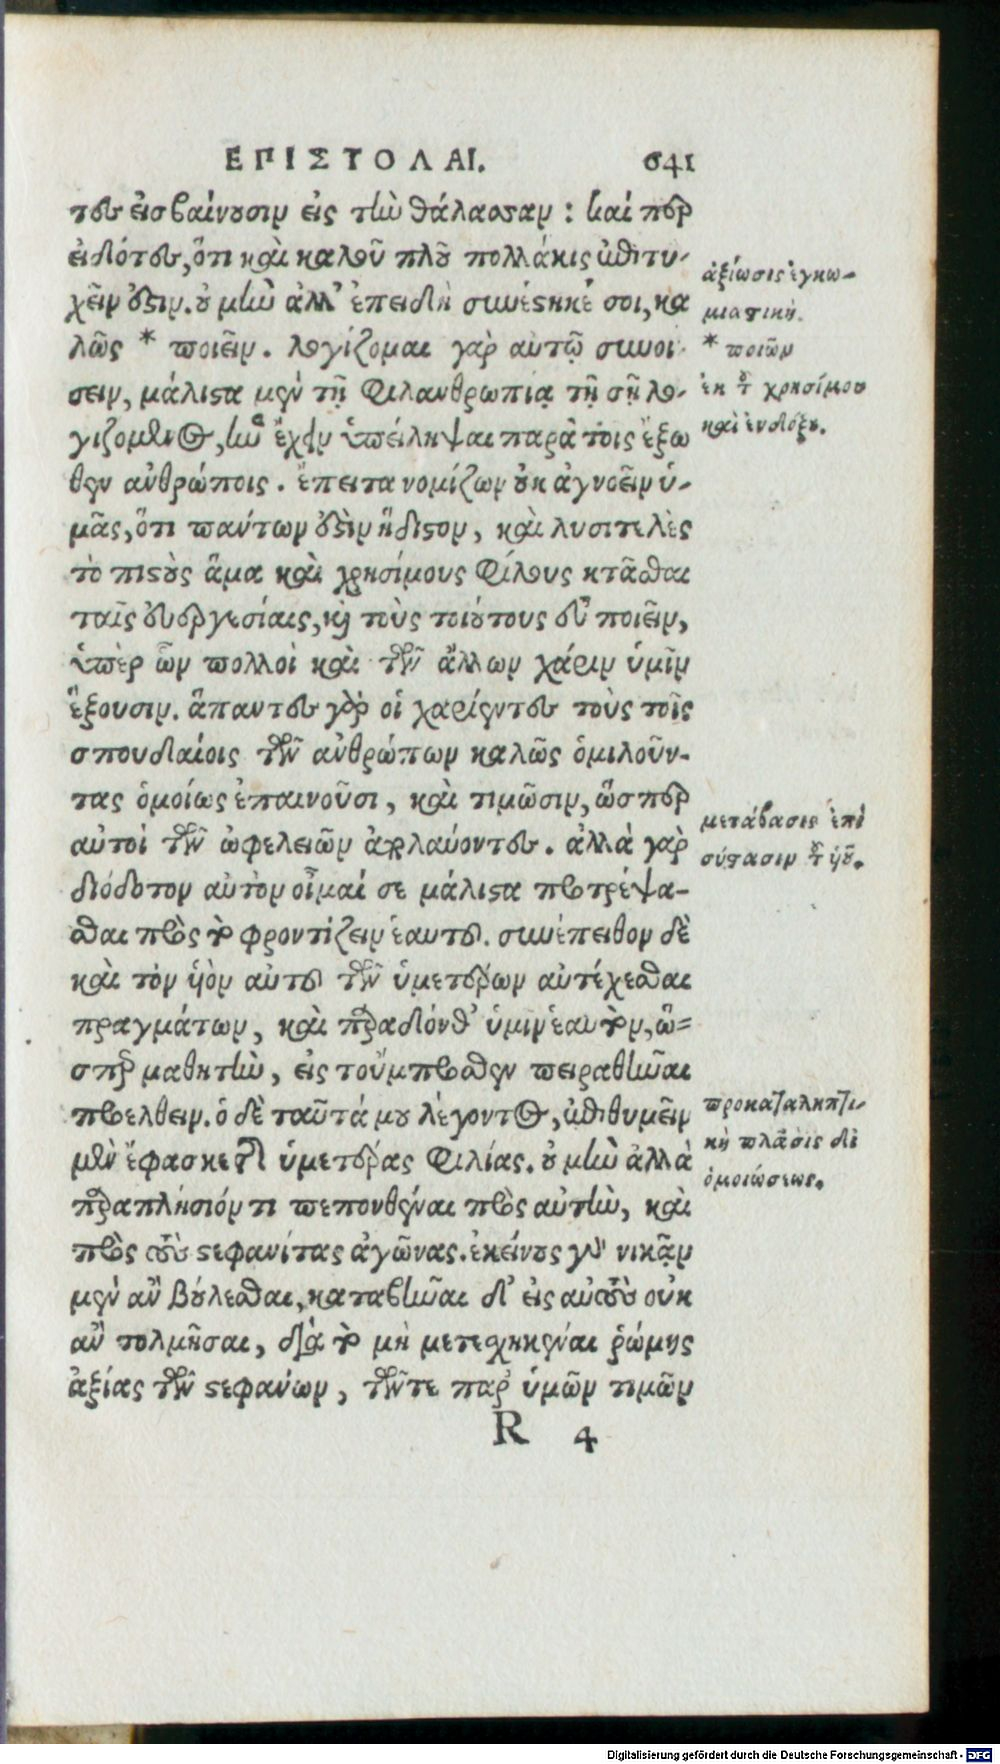 ΕΠΙΣΤΟΛΑΙ. 641
τες εἰσβαίνουσιν εἰς τὴν θάλασσαν: καί περ
εἰδότες, ὅτι καὶ καλοῦ πλοῦ πολλάκις ἐπιτυ-
χεῖν ἔστιν. οὐ μὴν ἀλλ' ἐπειδὴ συνέστηκέ σοι, κα
λῶς * ποιεῖν. λογίζομαι γὰρ αὐτῷ συνοί-
σειν, μάλιστα μὲν τῇ φιλανθρωπίᾳ τῇ σῇ λο-
γιζόμενος, ἣν ἔχειν ὑπείληψαι παρὰ τοῖς ἔξω
θεν ἀνθρώποις. ἔπειτα νομίζων οὐκ ἀγνοεῖν ὑ-
μᾶς, ὅτι πάντων ἐστὶν ἥδιστον, καὶ λυσιτελὲς
τὸ πιστοὺς ἅμα καὶ χρησίμους φίλους κτᾶσθαι
ταῖς εὐεργεσίαις, καὶ τοὺς τοιούτους εὖ ποιεῖν,
ὑπὲρ ὧν πολλοὶ καὶ τῶν ἄλλων χάριν ὑμῖν
ἕξουσιν. ἅπαντες γὰρ οἱ χαρίεντες τοὺς τοῖς
σπουδαίοις τῶν ἀνθρώπων καλῶς ὁμιλοῦν-
τας ὁμοίως ἐπαινοῦσι, καὶ τιμῶσιν, ὥσπερ
αὐτοὶ τῶν ὠφελειῶν ἀπολαύοντες. ἀλλὰ γὰρ
διόδοτον αὐτὸν οἶμαί σε μάλιστα προτρέψα-
σθαι πρὸς τὸ φροντίζειν ἑαυτοῦ. συνέπειθον δὲ
καὶ τὸν ὑὸν αὐτοῦ τῶν ὑμετέρων αντέχεσθαι
πραγμάτων, καὶ παραδόνθ' ὑμῖν ἑαυτὸν, ὥ-
σπερ μαθητὴν, εἰς τοὔμπροσθεν πειραθῆναι
προελθεῖν. ὁ δὲ ταῦτά μου λέγοντος, ἐπιθυμεῖν
μὲν ἔφασκε τῆς ὑμετέρας φιλίας. οὐ μὴν ἀλλὰ
παραπλήσιόν τι πεπονθέναι πρὸς αὐτὴν, καὶ
πρὸς τοὺς στεφανίτας ἀγῶνας. ἐκείνους γὰρ νικᾷν
μὲν ἂν βούλεσθαι, καταβῆναι δ' εἰς αὐτοὺς οὐκ
ἂν τολμῆσαι, διὰ τὸ μὴ μετεσχηκέναι ῥώμης
ἀξίας τῶν στεφάνων, τῶν τε παρ' ὑμῶν τιμῶν
R 4
ἀξίωσις ἐγκω-
μιαστική.
* ποιῶν
ἐκ τοῦ χρησίμου
καὶ ἐνδόξου.
μετάβασις ἐπὶ
σύστασιν τοῦ ὑοῦ.
προκαταληπτι-
κὴ πλάσις δι
ὁμοιώσεως.
Digitalisierung gefördert durch die Deutsche Forschungsgemeinschaft - DFG